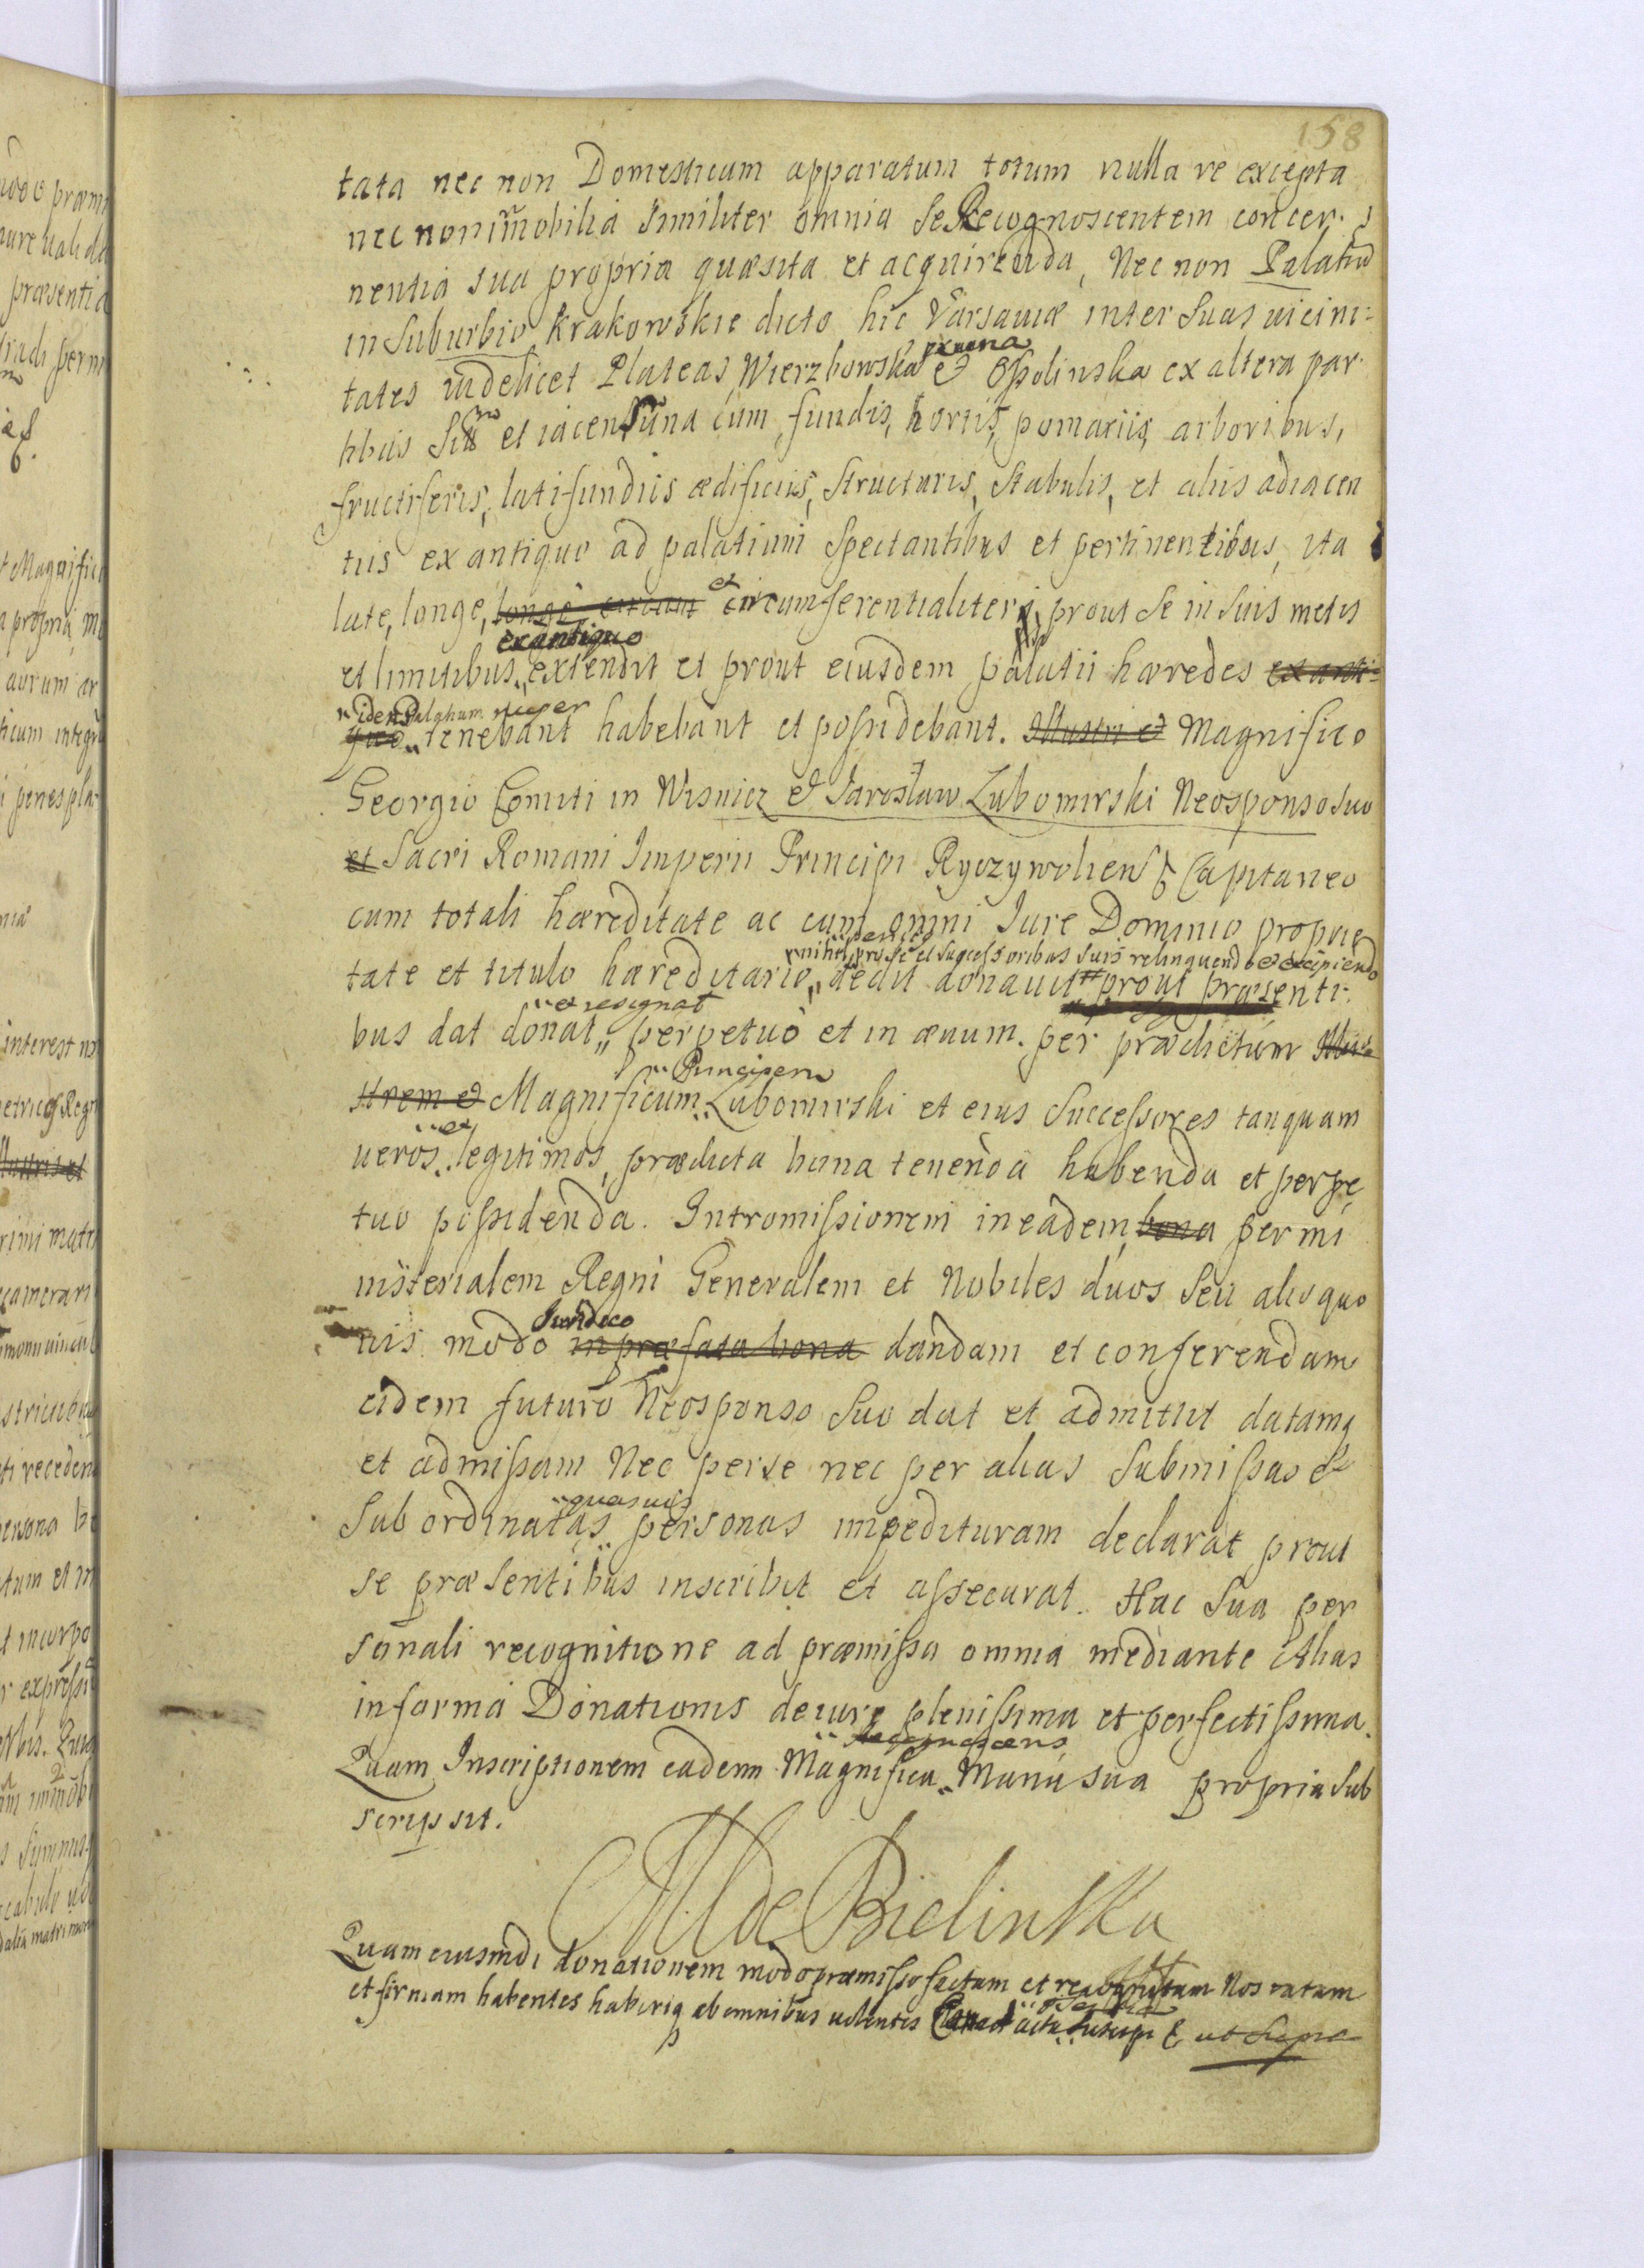 158
tata nec non Domesticum apparatum totum nulla re excepta
nec non immobilia similiter omnia se Recognoscentem concer-
nentia sua propria quæsita et acquirenda, Nec non Palatiũ
in suburbio Krakowskie dicto hic Varsaviæ inter suas vicini=
tates videlicet Plateas Wierzbowska ex una et Opolinska ex altera par-
tibus sitũ et iacens una cum fundis, hortis, pomariis, arboribus,
fructiferis, latifundiis ædificiis, structuris, stabulis, et aliis adiacen
tiis ex antiquo ad palatium spectantibus et pertinentibus, ita
late, longe, longe et circumferentialiter, prout se in suis metis
ex antiquo
et limitibus extendit et prout eiusdem palatii hæredes ex anti=
idem Palatium nuper
quo tenebant habebant et possidebant. Illustri et Magnifico
Georgio Comiti in Wisnicz et Jaroslaw Lubomirski Neosponso suo
et Sacri Romani Imperii Principi Ryczywoliens Capitaneo
cum totali hæreditate ac cum omni Jure Dominio proprie
nihil pro se et successoribus suis relinquendo et excipiendo
tate et titulo hæreditario dedit donavit prout præsenti-
et resignat
bus dat donat perpetuo et in ævum. per prædictum Illu-
Principem
strem et Magnificum Lubomirski et eius Successores tanquam
et
veros legitimos, prædicta bona tenenda habenda et perpe
tuo possidenda. Intromissionem in eadem bona per mi
nisterialem Regni Generalem et Nobiles duos seu alio quo
Juridico
vis modo in præfata bona dandam et conferendam
eidem futuro Neosponso suo dat et admittit datamq
et admissam Nec per se nec per alias submissas et
quasvis
subordinatas personas impedituram declarat prout
se præsentibus inscribit et assecurat. Hac sua per
sonali recognitione ad præmissa omnia mediante Alias
in forma Donationis de iure plenissima et perfectissima.
Recognoscens
Quam Inscriptionem eadem Magnifica Manu sua propria sub
scripsit.
M de Bielinska
Quam eiusmdi donationem modo præmisso factam et recognitam Nos ratam
et firmam habentes haberiq ab omnibus volentes acta ut supra